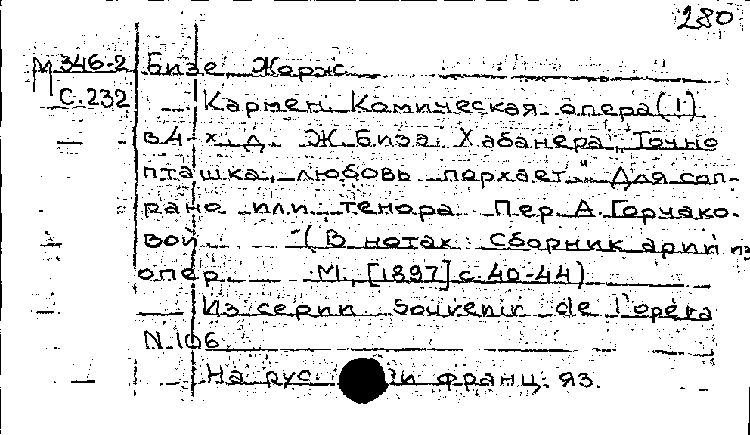 280
М 346-2 Бизе, Жорж
С.232 Кармен. Комическая опера (!)
в 4-х д. Ж. Бизэ. Хабанера "Точно
пташка, любовь порхает". Для соп-
рано или тенора. Пер. А. Горчако-
вой (В нотах: Сборник арий из
опер. М., [1897] с. 40-44)
Из серии Souvenir de l'opéra
N. 106
На рус. и франц. яз.